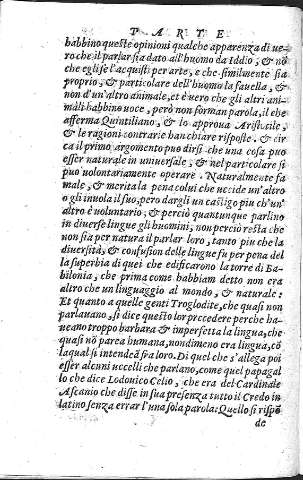 PARTE
habbino queste opinioni qualche apparenza di ue-
ro che il parlar sia dato all'huomo da Iddio, & nõ
che egli se l'acquisti per arte, e che similmente sia
proprio, & particolare dell'huomo la fauella, &
non d'un'altro animale, et è uero che gli altri ani-
mali habbino uoce, però non forman parola, il che
afferma Quintiliano, & lo approua Aristotile,
& le ragioni contrarie han chiare risposte. & cir
ca il primo argomento puo dirsi che una cosa puo
esser naturale in uniuersale, & nel particolare si
puo uolontariamente operare. Naturalmente fa
male, & merita la pena colui che uccide un'altro
o gli inuola il suo, pero dargli un castigo piu ch'un'
altro è uolontario, & perciò quantunque parlino
in diuerse lingue gli huomini, non perciò resta che
non sia per natura il parlar loro, tanto piu che la
diuersità, & confusion delle lingue fu per pena del
la superbia di quei che edificarono la torre di Ba-
bilonia, che prima come habbiam detto non era
altro che un linguaggio al mondo, & naturale,
Et quanto a quelle genti Troglodite, che quasi non
parlauano, si dice questo lor precedere perche ha-
ueano troppo barbara & imperfetta la lingua, che
quasi nõ parea humana, nondimeno era lingua, cõ
la qual si intendeã fra loro. Di quel che s'allega poi
esser alcuni uccelli che parlano, come quel papagal
lo che dice Lodouico Celio, che era del Cardinale
Ascanio che disse in sua presenza tutto il Credo in
latino senza errar l'una sola parola: Quello si rispõ
de